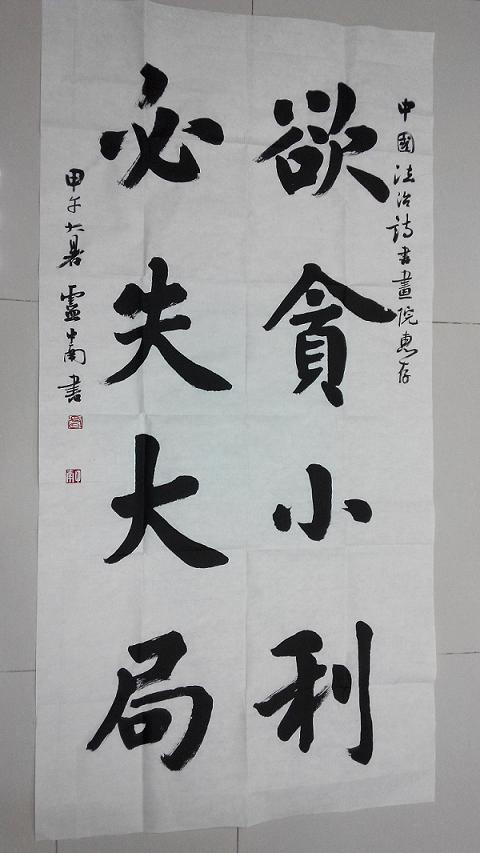 中國法治詩書畫院惠存
欲貪小利
必失大局
甲午大暑盧中南書